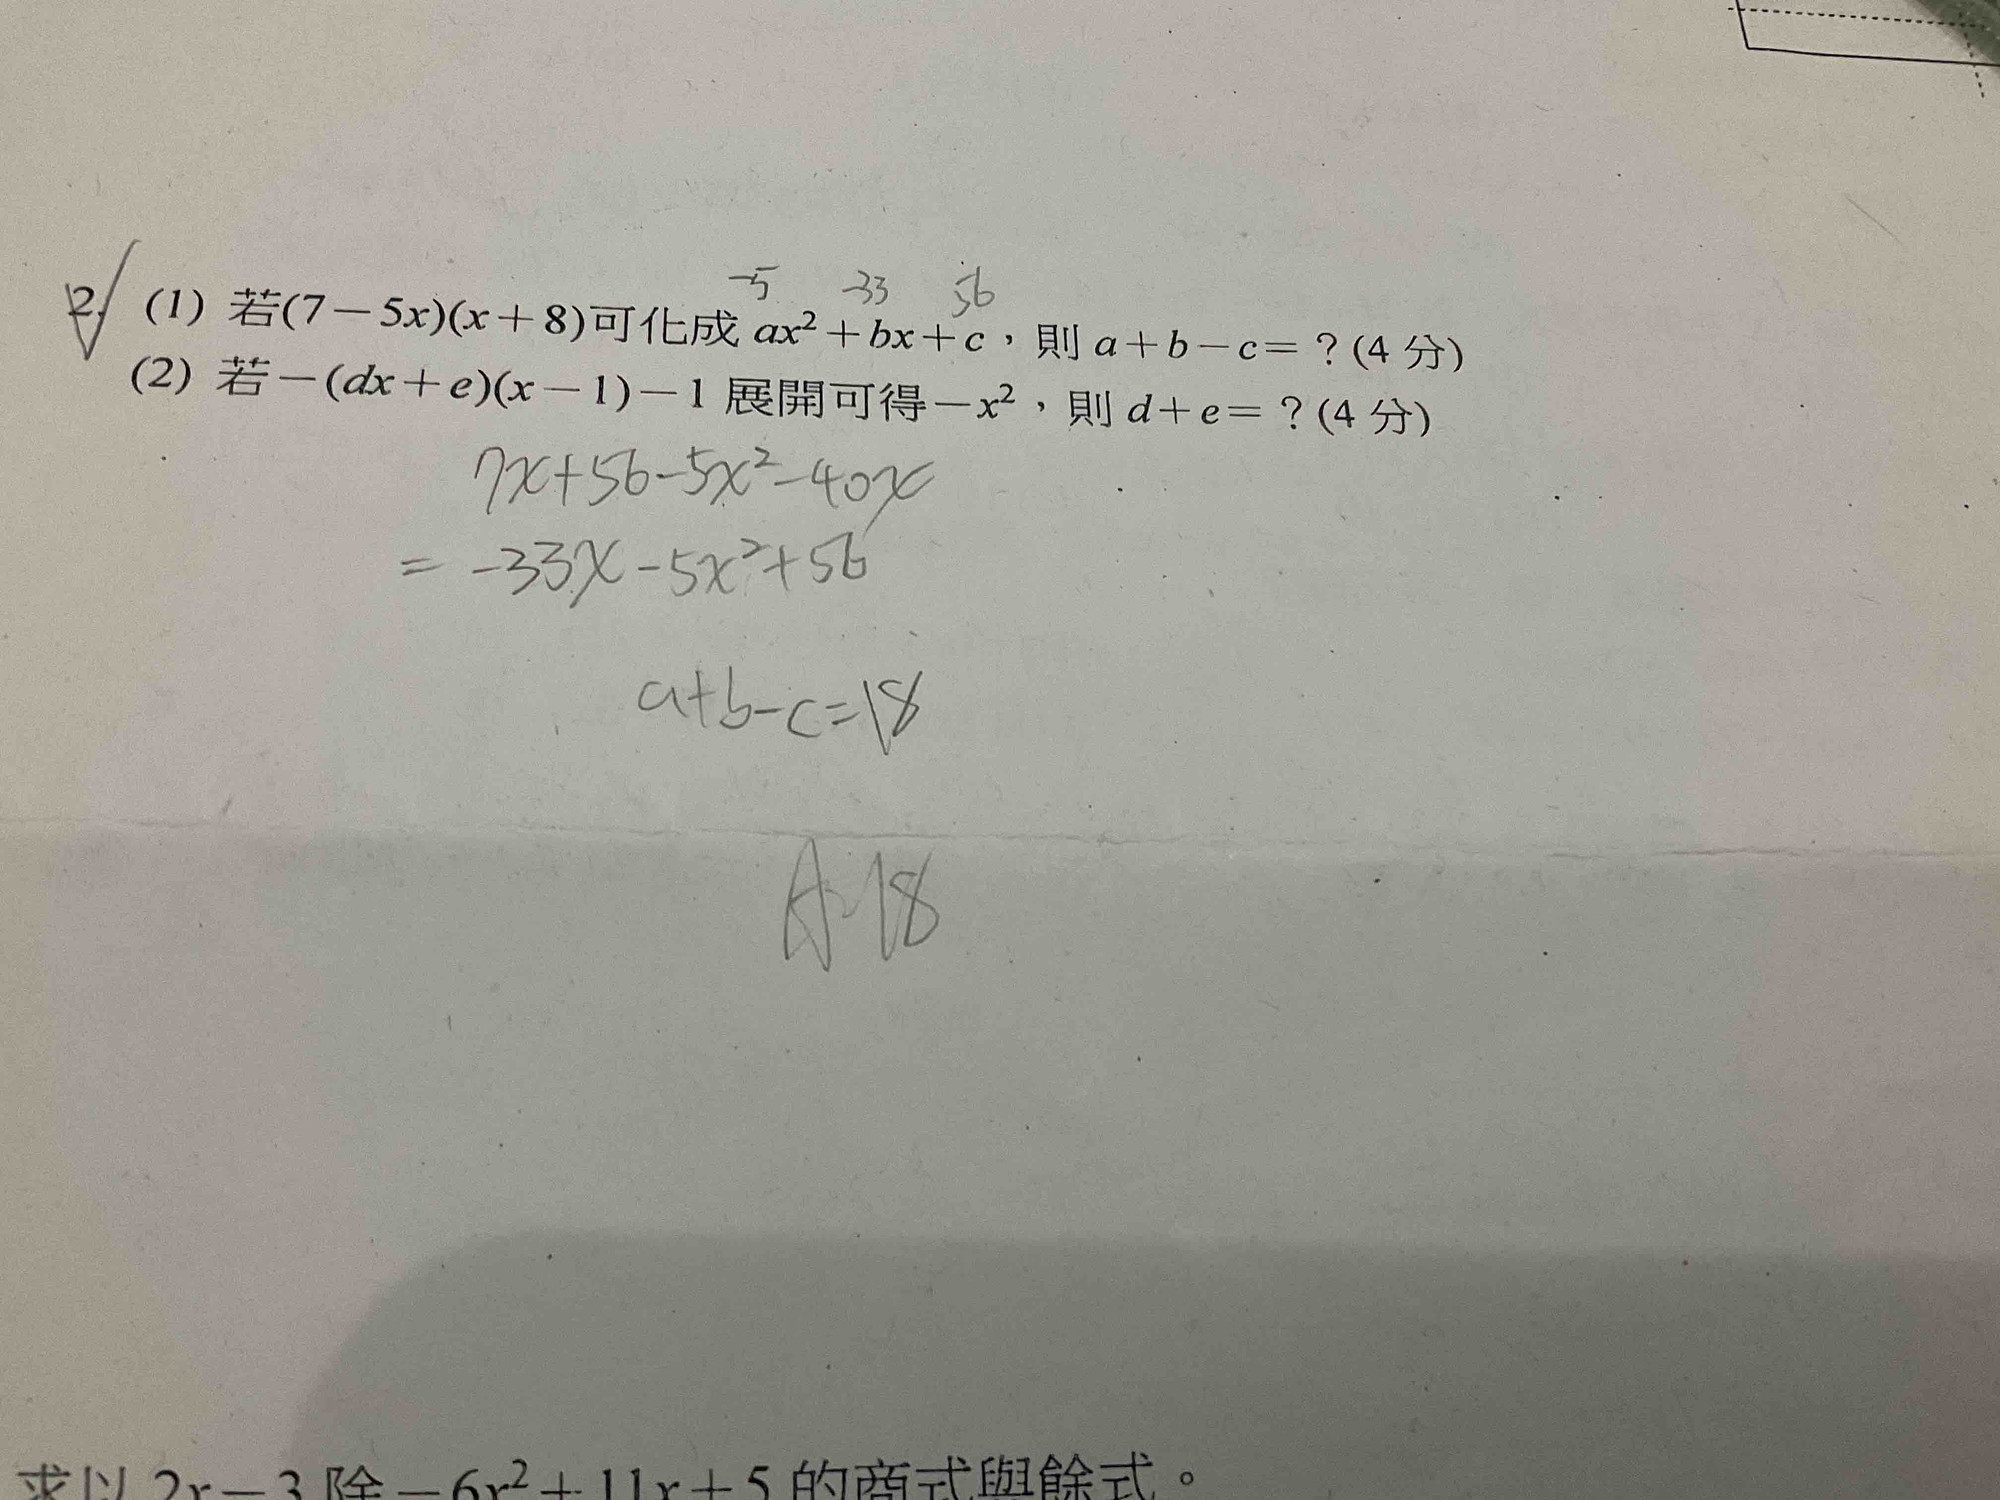 -5 -33 56
2. (1) 若(7－5x)(x＋8)可化成 ax²＋bx＋c，則 a＋b－c＝？(4 分)
(2) 若－(dx＋e)(x－1)－1 展開可得－x²，則 d＋e＝？(4 分)
7x+56-5x²-40x
= -33x-5x²+56
a+b-c=18
A:18
求以 2x－3 除－6x²＋11x＋5 的商式與餘式。